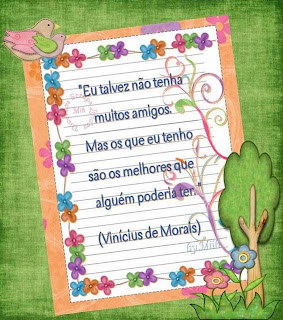 "Eu talvez não tenha
muitos amigos.
Mas os que eu tenho
são os melhores que
alguém poderia ter."
(Vinícius de Morais)